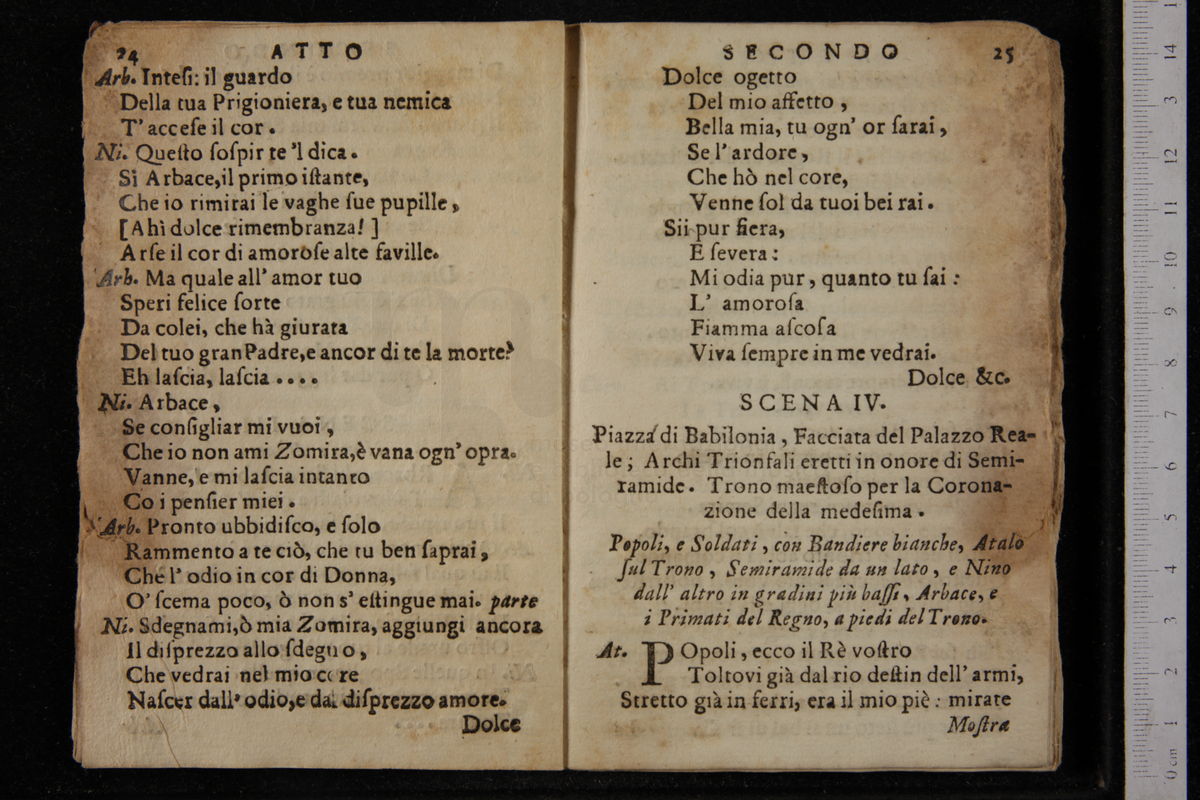 24 ATTO
Arb. Inteſi: il guardo
Della tua Prigioniera, e tua nemica
T' acceſe il cor.
Ni. Queſto ſoſpir te 'l dica.
Sì Arbace, il primo iſtante,
Che io rimirai le vaghe ſue pupille,
[Ahì dolce rimembranza! ]
Arſe il cor di amoroſe alte faville.
Arb. Ma quale all' amor tuo
Speri felice ſorte
Da colei, che hà giurata
Del tuo gran Padre, e ancor di te la morte?
Eh laſcia, laſcia ....
Ni. Arbace,
Se conſigliar mi vuoi,
Che io non ami Zomira, è vana ogn' opra.
Vanne, e mi laſcia intanto
Co i penſier miei.
Arb. Pronto ubbidiſco, e ſolo
Rammento a te ciò, che tu ben ſaprai,
Che l' odio in cor di Donna,
O' ſcema poco, ò non s' eſtingue mai. parte
Ni. Sdegnami, ò mia Zomira, aggiungi ancora
Il diſprezzo allo ſdegno,
Che vedrai nel mio core
Naſcer dall' odio, e dal diſprezzo amore.
Dolce
SECONDO 25
Dolce ogetto
Del mio affetto,
Bella mia, tu ogn' or ſarai,
Se l' ardore,
Che hò nel core,
Venne ſol da tuoi bei rai.
Sii pur fiera,
E ſevera:
Mi odia pur, quanto tu ſai:
L' amoroſa
Fiamma aſcoſa
Viva ſempre in me vedrai.
Dolce &c.
SCENA IV.
Piazza di Babilonia, Facciata del Palazzo Rea-
le; Archi Trionfali eretti in onore di Semi-
ramide. Trono maeſtoſo per la Corona-
zione della medeſima.
Popoli, e Soldati, con Bandiere bianche, Atalo
ſul Trono, Semiramide da un lato, e Nino
dall' altro in gradini più baſſi, Arbace, e
i Primati del Regno, a piedi del Trono.
At. POpoli, ecco il Rè voſtro
Toltovi già dal rio deſtin dell' armi,
Stretto già in ferri, era il mio piè: mirate
Moſtra
0 cm 1 2 3 4 5 6 7 8 9 10 11 12 3 14 1